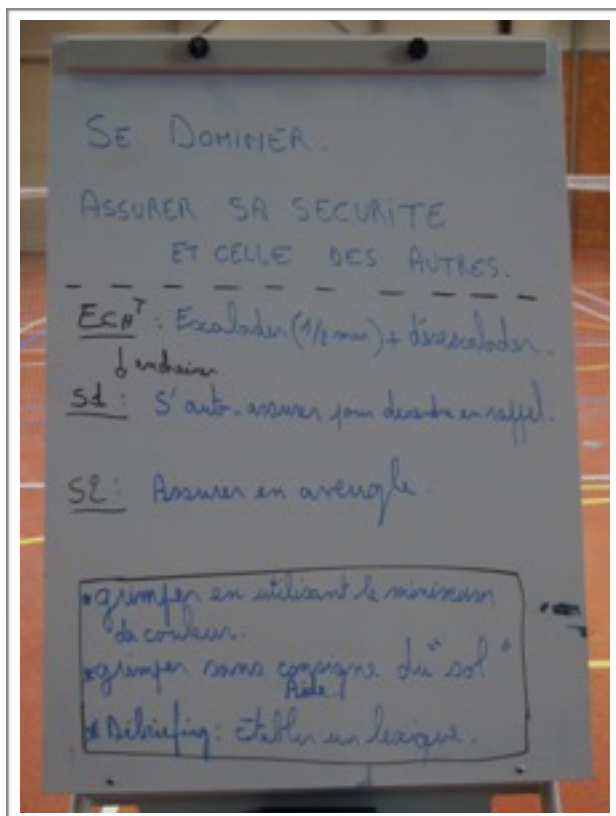 SE DOMINER.
ASSURER SA SECURITE
ET CELLE DES AUTRES.
ECHᵀ : Escalader (1/2 mur) + désescalader.
↓ enchaîner
S1 : S'auto-assurer pour descendre en rappel.
S2 : Assurer en aveugle.
* grimper en utilisant le minimum
de couleur.
* grimper sans consigne du "sol"
Aide
* Débriefing : établir un lexique.